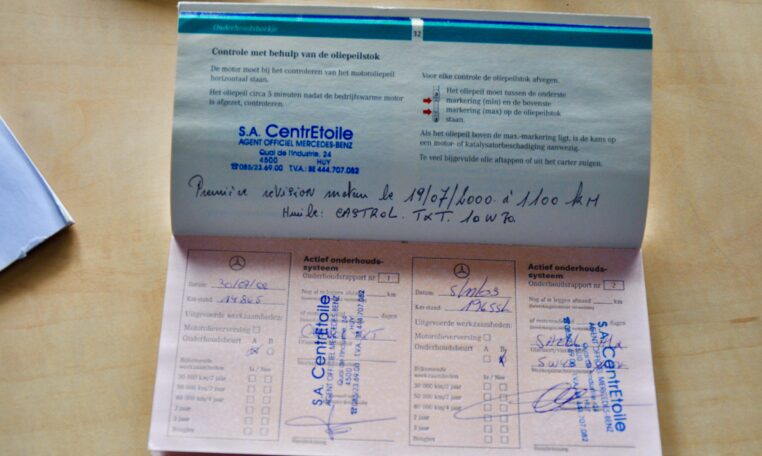 Onderhoudsboekje
32
Controle met behulp van de oliepeilstok
De motor moet bij het controleren van het motoroliepeil
horizontaal staan.
Het oliepeil circa 5 minuten nadat de bedrijfswarme motor
is afgezet, controleren.
S.A. CentrEtoile
AGENT OFFICIEL MERCEDES-BENZ
Quai de l'Industrie, 24
4500 HUY
☎085/23.69.00 T.V.A.: BE 444.707.082
Voor elke controle de oliepeilstok afvegen.
Het oliepeil moet tussen de onderste
markering (min) en de bovenste
markering (max) op de oliepeilstok
staan.
Als het oliepeil boven de max.-markering ligt, is de kans op
een motor- of katalysatorbeschadiging aanwezig.
Te veel bijgevulde olie aftappen of uit het carter zuigen.
Première révision moteur le 19/07/2000 à 1100 km
Huile: CASTROL. TXT. 10W30.
Datum
Km-stand
Uitgevoerde werkzaamheden:
Motorolieverversing
Onderhoudsbeurt A B
Bijkomende
werkzaamheden Ja / Nee
30 000 km/2 jaar
50 000 km/2 jaar
60 000 km/4 jaar
2 jaar
3 jaar
Actief onderhouds-
systeem
Onderhoudsrapport nr 1
Nog af te leggen afstand km
dagen
S.A. CentrEtoile
AGENT OFFICIEL MERCEDES-BENZ
Quai de l'Industrie, 24
4500 HUY
☎085/23.69.00 T.V.A.: BE 444.707.082
Datum
Km-stand
Uitgevoerde werkzaamheden:
Motorolieverversing
Onderhoudsbeurt A B
Bijkomende
werkzaamheden Ja / Nee
30 000 km/2 jaar
50 000 km/2 jaar
60 000 km/4 jaar
2 jaar
3 jaar
Actief onderhouds-
systeem
Onderhoudsrapport nr 2
Nog af te leggen afstand km
dagen
S.A. CentrEtoile
AGENT OFFICIEL MERCEDES-BENZ